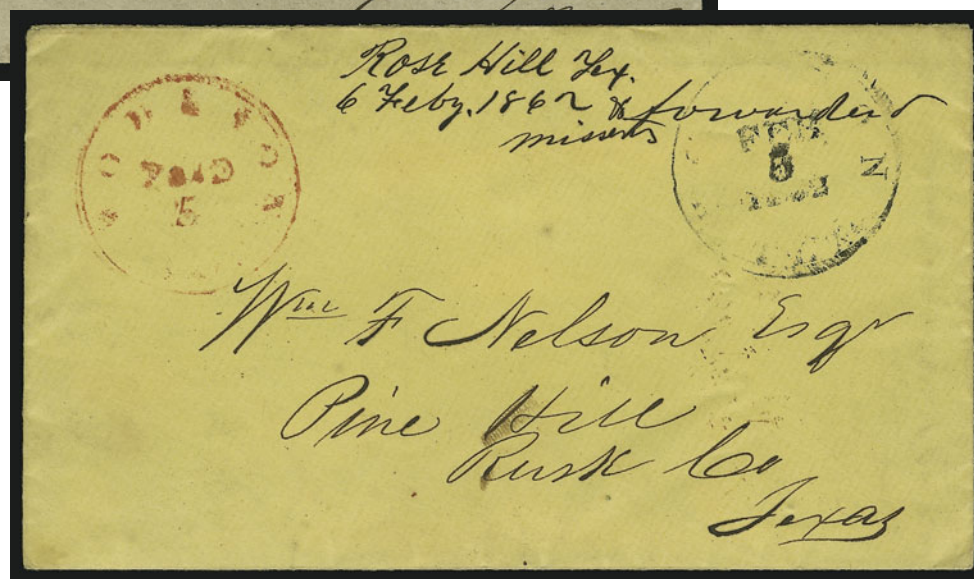 Rose Hill Tex.
6 Feby. 1862 & forwarded
missent
PAID
5
FEB
5
N
Wm F Nelson Esqr
Pine Hill
Rusk Co
Texas